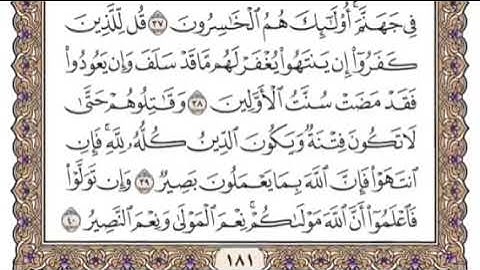 فِي جَهَنَّمَ ۚ أُولَٰئِكَ هُمُ الْخَاسِرُونَ ٣٧ قُل لِّلَّذِينَ
كَفَرُوا إِن يَنتَهُوا يُغْفَرْ لَهُم مَّا قَدْ سَلَفَ وَإِن يَعُودُوا
فَقَدْ مَضَتْ سُنَّتُ الْأَوَّلِينَ ٣٨ وَقَاتِلُوهُمْ حَتَّىٰ
لَا تَكُونَ فِتْنَةٌ وَيَكُونَ الدِّينُ كُلُّهُ لِلَّهِ ۚ فَإِنِ
انتَهَوْا فَإِنَّ اللَّهَ بِمَا يَعْمَلُونَ بَصِيرٌ ٣٩ وَإِن تَوَلَّوْا
فَاعْلَمُوا أَنَّ اللَّهَ مَوْلَاكُمْ ۚ نِعْمَ الْمَوْلَىٰ وَنِعْمَ النَّصِيرُ ٤٠
١٨١